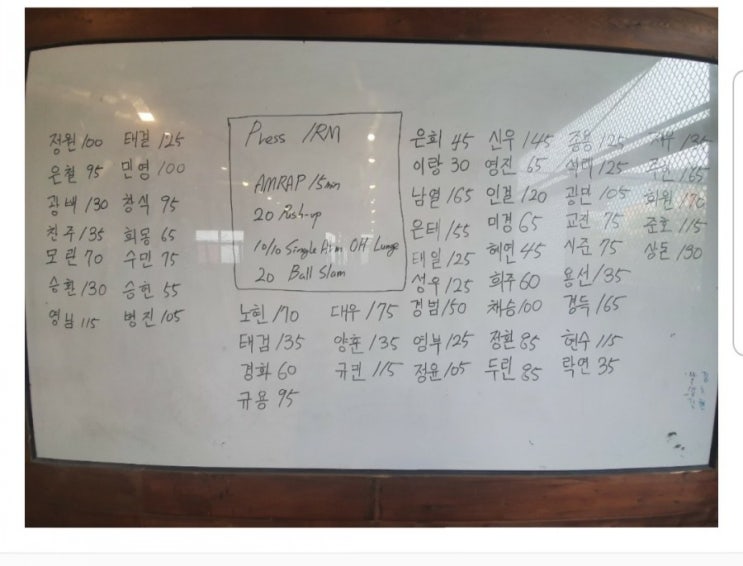 정원 100 태걸 125
은철 95 민영 100
광배 130 창식 95
친주 135 희몽 65
모란 70 수민 75
승환 130 승현 55
영님 115 병진 105
Press 1RM
AMRAP 15min
20 Push-up
10/10 Single Arm OH Lunge
20 Ball Slam
노헌 170 대우 175
태검 135 양훈 135
경화 60 규민 115
규용 95
은희 45 신우 145 종용 125
이랑 30 영진 65 125 165
남열 165 인걸 120 광민 105 화원 170
은태 155 미경 65 교진 75 준호 115
태일 125 혜연 45 시준 75 상돈 130
성우 125 희주 60 용선 135
경범 150 채승 100 경득 165
영부 125 장환 85 현수 115
정윤 105 두린 85 락연 35